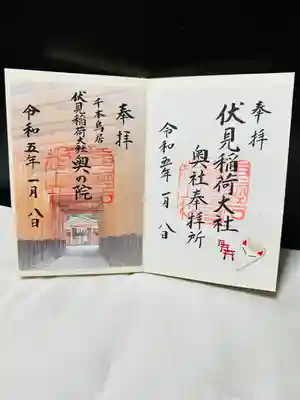 奉拝
伏見稲荷大社
奥社奉拝所
令和五年一月八日
奉拝
千本鳥居
伏見稲荷大社
奥の院
令和五年一月八日